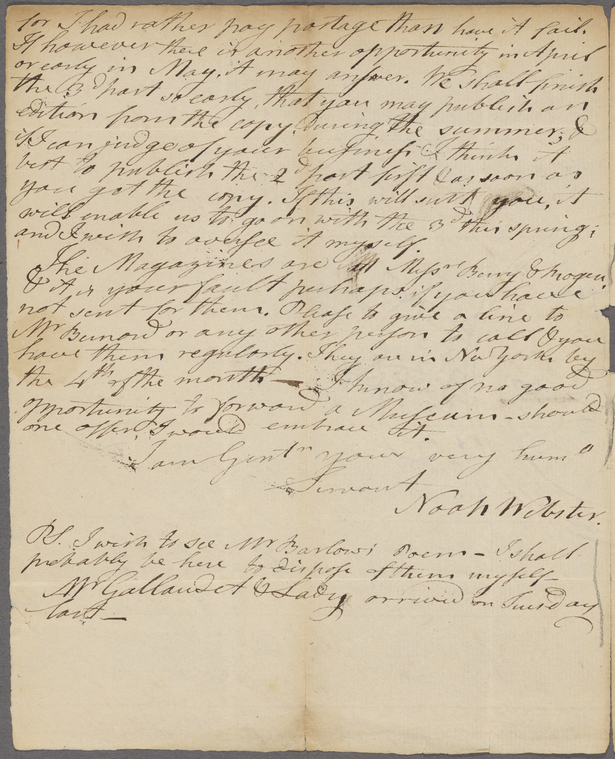 for I had rather pay postage than have it fail.
If however there is another opportunity in April
or early in May, it may answer. We shall finish
the 3d part so early, that you may publish an
edition from the copy during the summer; &
if I can judge of your business, I think it
best to publish the 2d part first & as soon as
you got the copy. If this will suit you, it
will enable us to go on with the 3d this spring;
and I wish to oversee it myself.
The Magazines are at Messrs Berry & Rogers
& it is your fault perhaps if you have
not sent for them. Please to give a line to
Mr or any other person to call & you
have them regularly. They are in New York by
the 4th of the month — I know of no good
opportunity to forward a Museum - should
one offer, I would embrace it.
I am Gentn your very humll
Servant
Noah Webster.
PS. I wish to see Mr Barlow's Poem - I shall
probably be here to dispose of them myself
Mr Gallaudet & Lady arrived on Tuesday
last —